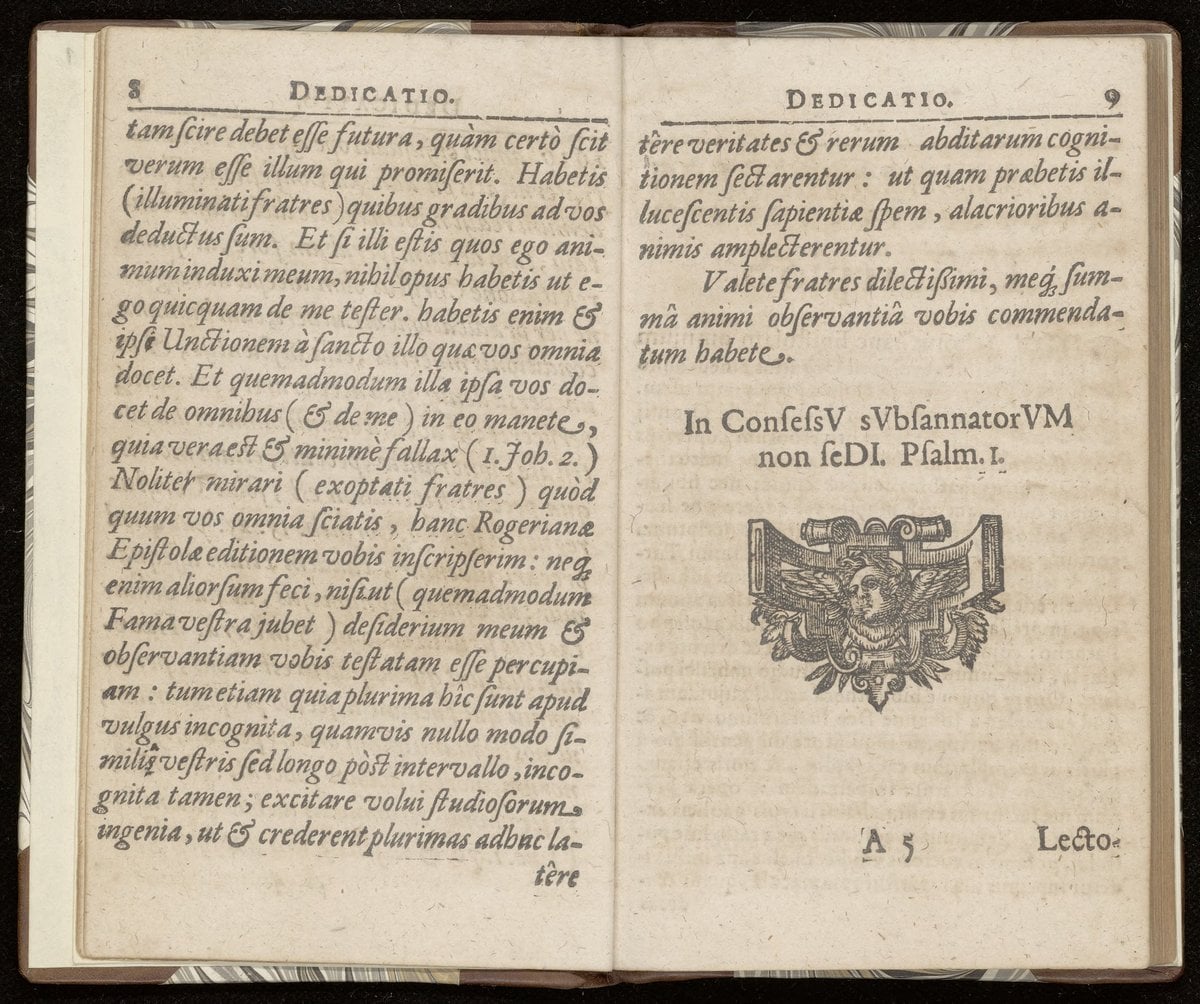 8 DEDICATIO.
tam ſcire debet eſſe futura, quàm certò ſcit
verum eſſe illum qui promiſerit. Habetis
(illuminati fratres) quibus gradibus ad vos
deductus ſum. Et ſi illi eſtis quos ego ani-
mum induxi meum, nihil opus habetis ut e-
go quicquam de me teſter. habetis enim &
ipſi Unctionem à ſancto illo quæ vos omnia
docet. Et quemadmodum illa ipſa vos do-
cet de omnibus (& de me) in eo manete,
quia vera eſt & minimè fallax (1. Joh. 2.)
Noliter mirari (exoptati fratres) quòd
quum vos omnia ſciatis, hanc Rogerianæ
Epiſtolæ editionem vobis inſcripſerim: neq;
enim aliorſum feci, niſi ut (quemadmodum
Fama veſtra jubet) deſiderium meum &
obſervantiam vobis teſtatam eſſe percupi-
am: tum etiam quia plurima hîc ſunt apud
vulgus incognita, quamvis nullo modo ſi-
milia veſtris ſed longo pòſt intervallo, inco-
gnita tamen; excitare volui ſtudioſorum
ingenia, ut & crederent plurimas adhuc la-
têre
DEDICATIO. 9
têre veritates & rerum abditarum cogni-
tionem ſectarentur: ut quam præbetis il-
luceſcentis ſapientiæ ſpem, alacrioribus a-
nimis amplecterentur.
Valete fratres dilectißimi, meq́; ſum-
mâ animi obſervantiâ vobis commenda-
tum habete.
In ConſeſsV sVbſannatorVM
non ſeDI. Pſalm. 1.
A 5 Lecto-